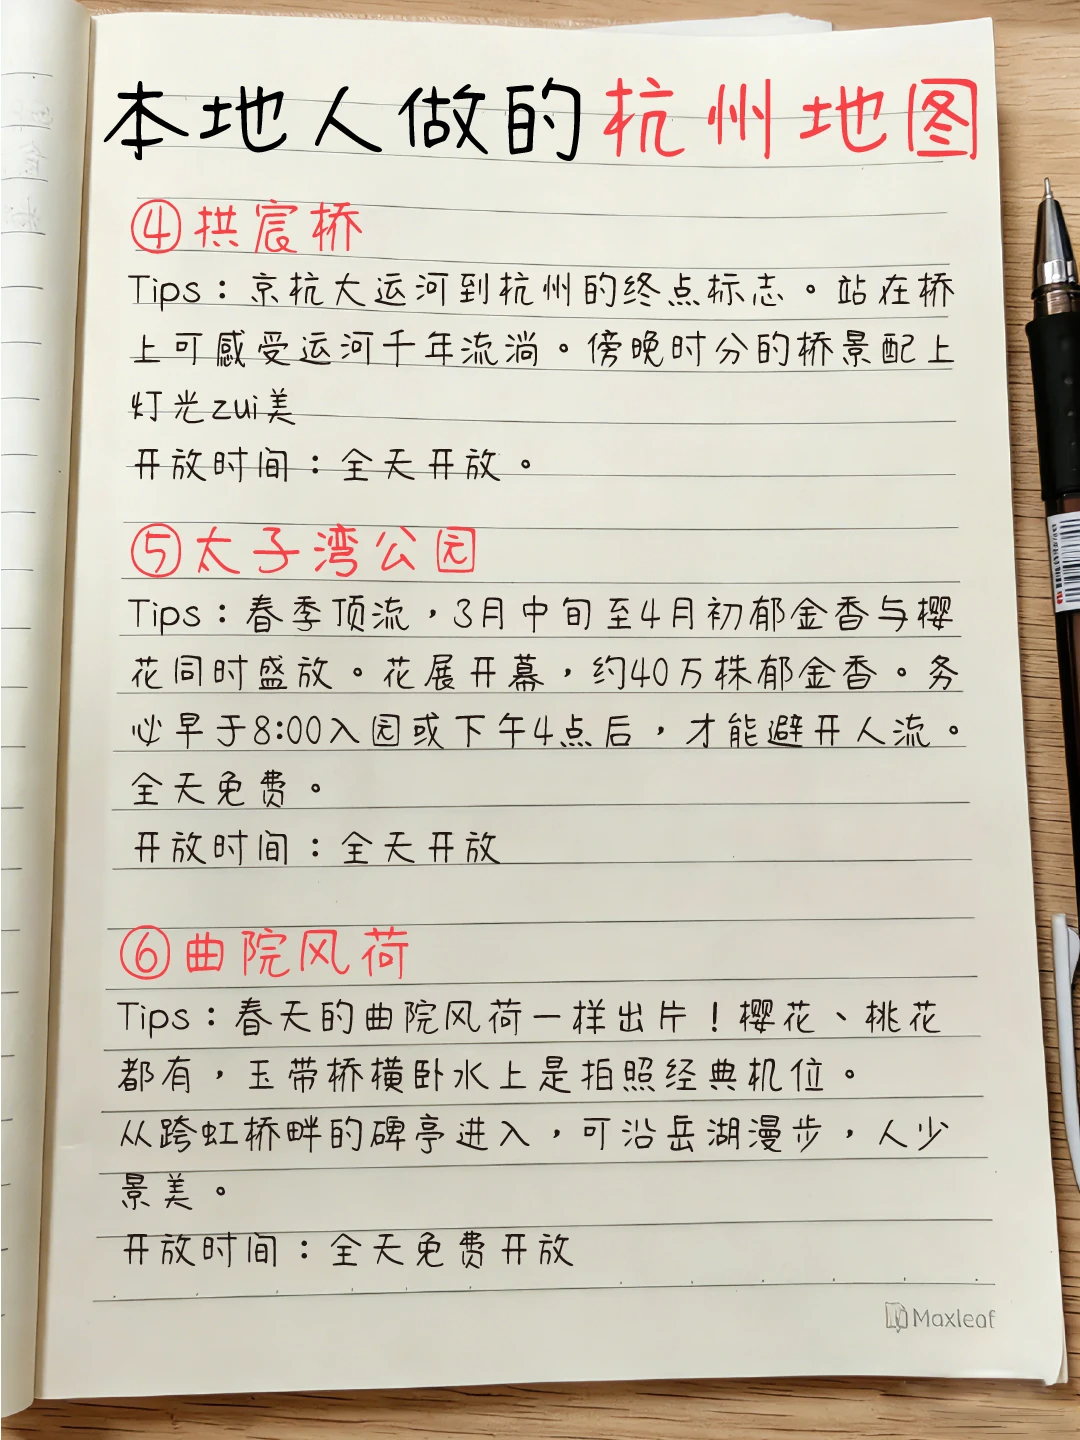 本地人做的杭州地图
④拱宸桥
Tips：京杭大运河到杭州的终点标志。站在桥
上可感受运河千年流淌。傍晚时分的桥景配上
灯光zui美
开放时间：全天开放。
⑤太子湾公园
Tips：春季顶流，3月中旬至4月初郁金香与樱
花同时盛放。花展开幕，约40万株郁金香。务
必早于8:00入园或下午4点后，才能避开人流。
全天免费。
开放时间：全天开放
⑥曲院风荷
Tips：春天的曲院风荷一样出片！樱花、桃花
都有，玉带桥横卧水上是拍照经典机位。
从跨虹桥畔的碑亭进入，可沿岳湖漫步，人少
景美。
开放时间：全天免费开放
Maxleaf